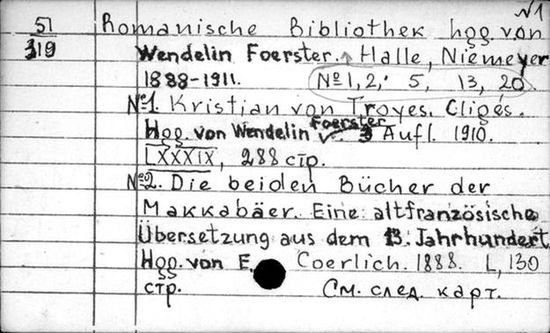 №1
51 Romanische Bibliothek hgg. von
319 Wendelin Foerster. Halle, Niemeyer
1888-1911. №1, 2, 5, 13, 20
№1. Kristian von Troyes. Cligés.
Hgg. von Wendelin Foerster 3 Aufl. 1910.
LXXXIX, 288 стр.
№2. Die beiden Bücher der
Makkabäer. Eine altfranzösische
Übersetzung aus dem 13. Jahrhundert
Hgg. von E. Goerlich. 1888. L, 130
стр. См. след. карт.